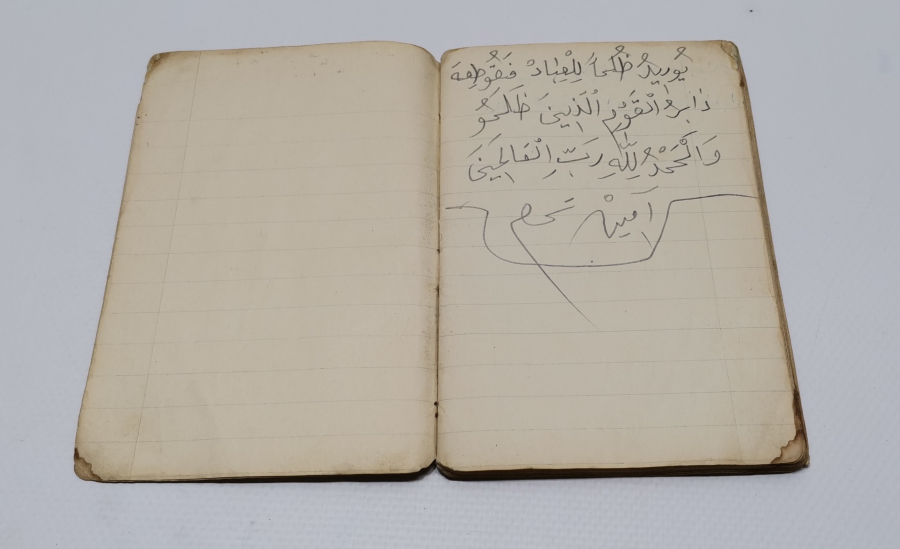 يُورِيدُ ظُلْمًا لِلْعِبَادْ فَقُوطِعَ
دَابِرُ الْقَوْمِ الَّذِينَ ظَلَمُو
وَالْحَمْدُ لِلَّهِ رَبِّ الْعَالَمِينَ
آمِينْ تم